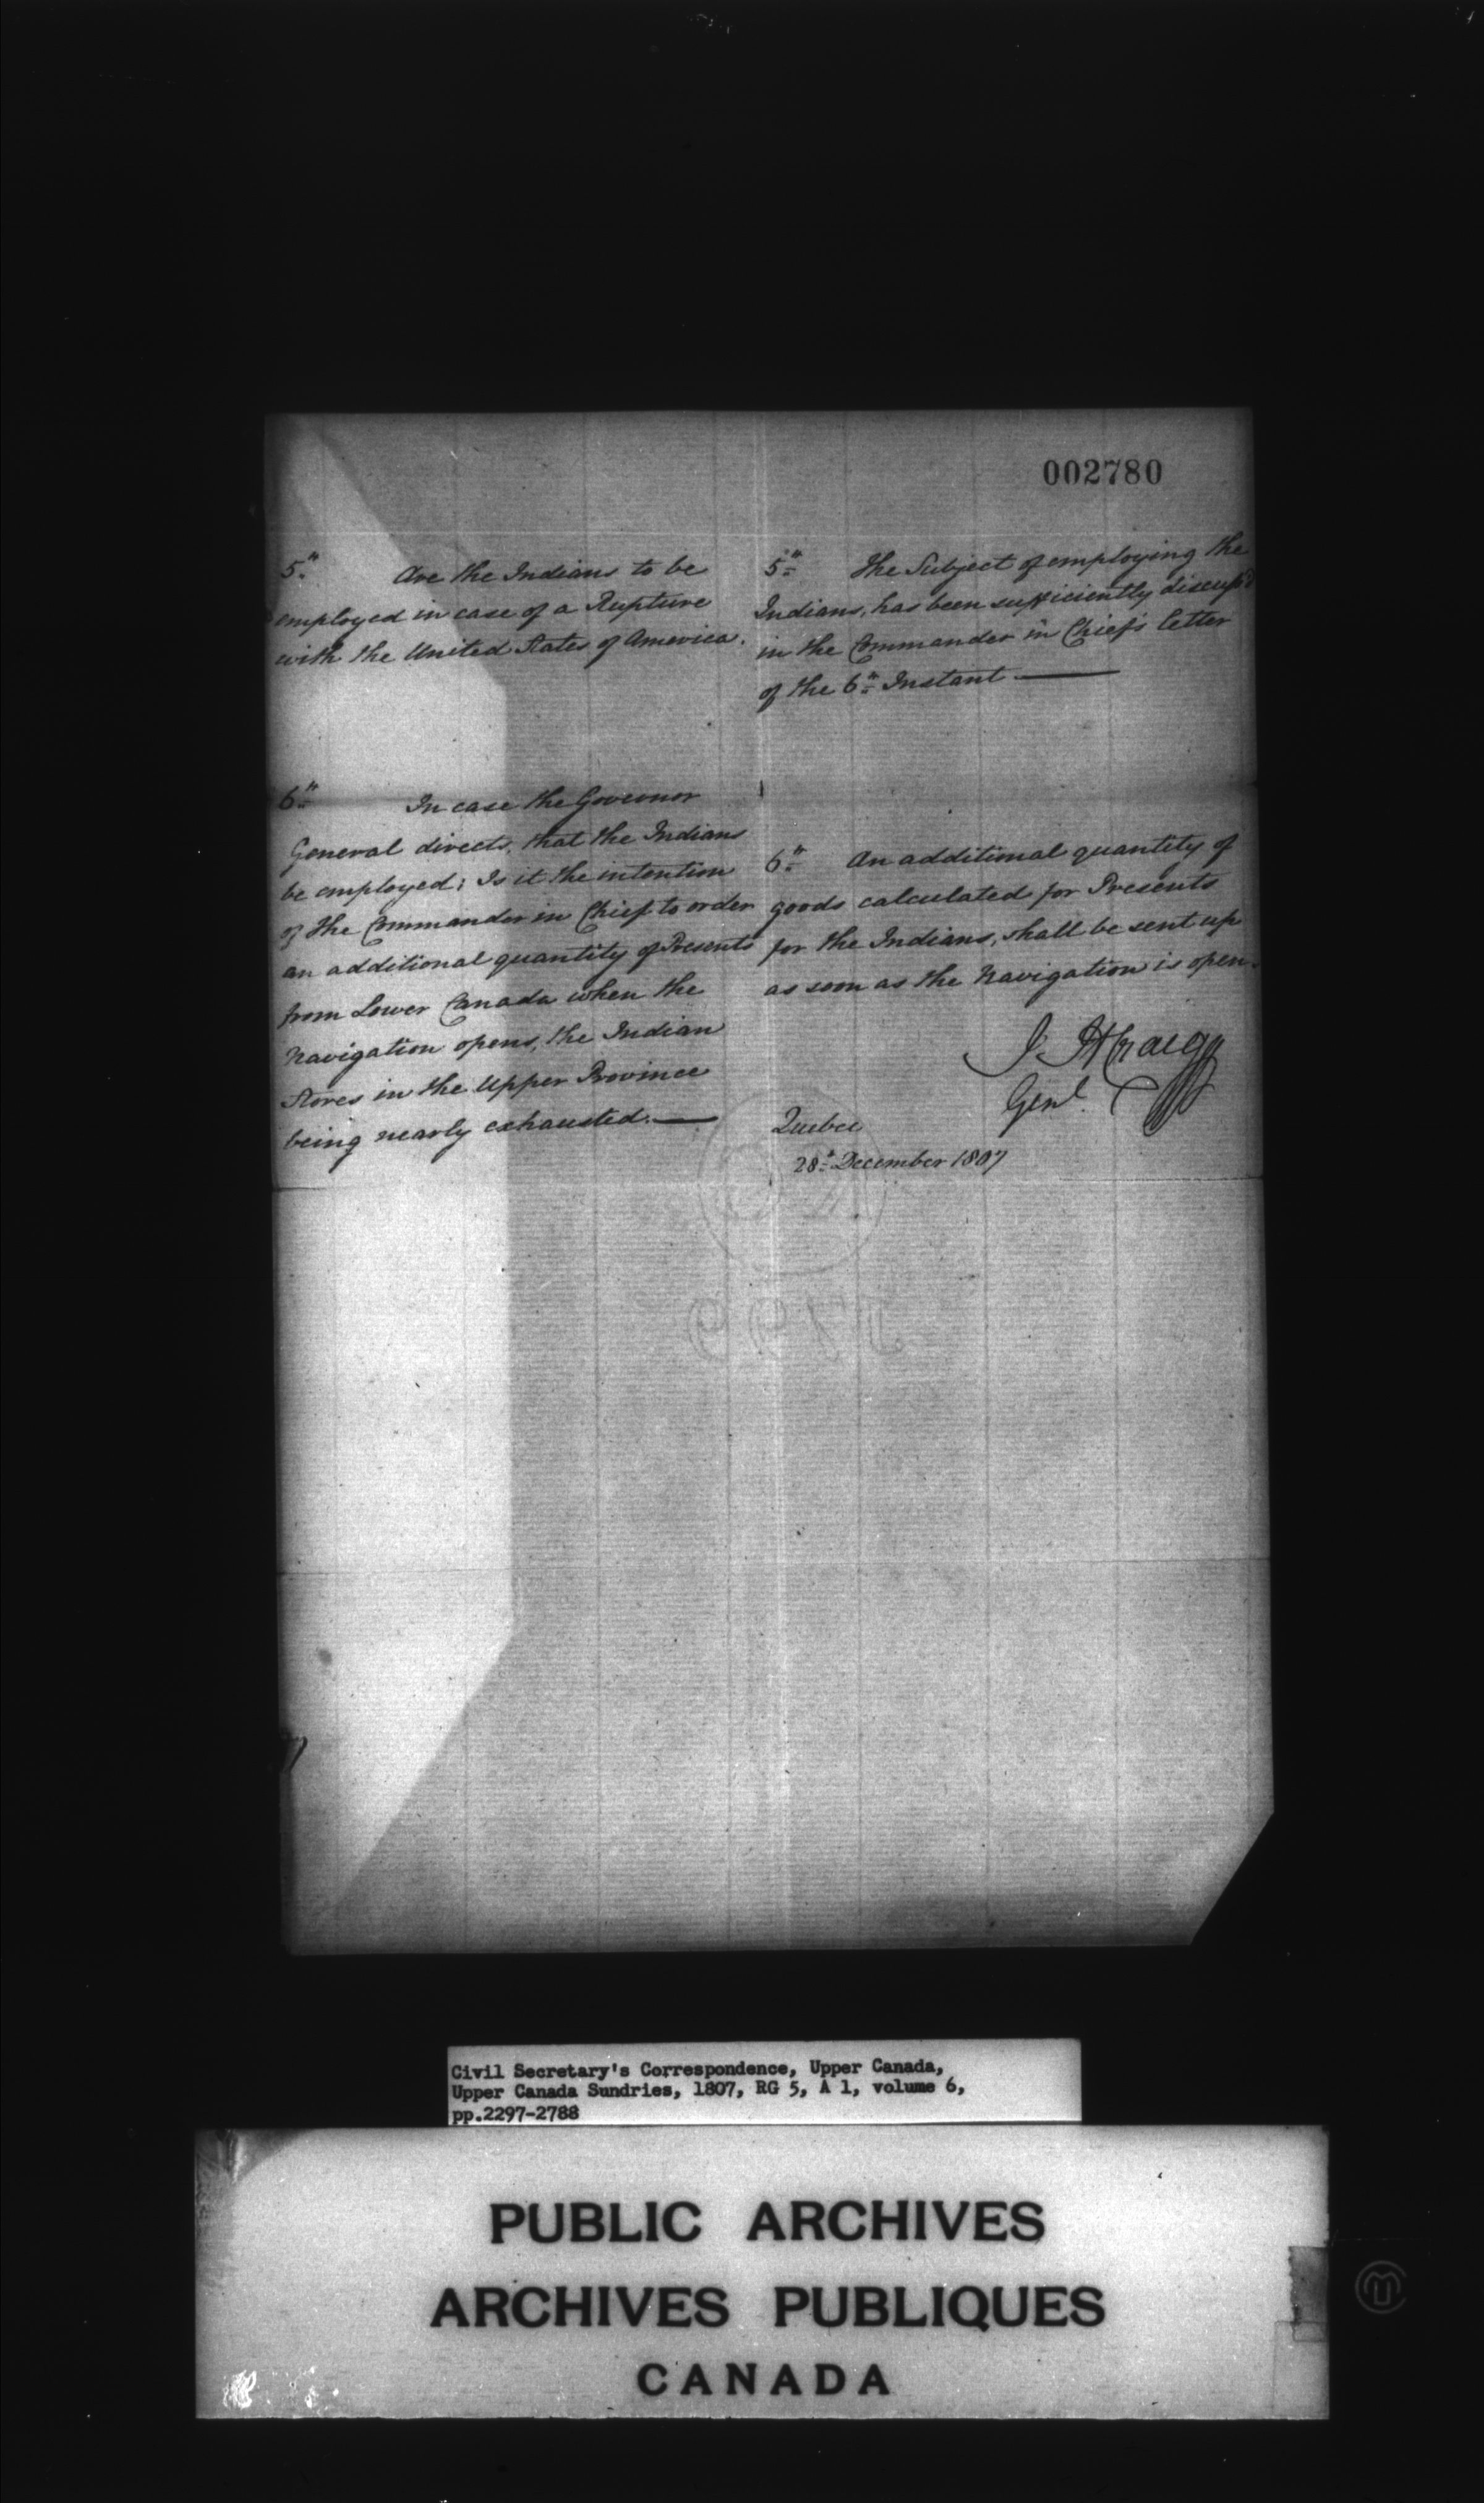 002780
5th Are the Indians to be
employed in case of a Rupture
with the United States of America.
6th In case the Governor
General directs, that the Indians
be employed; Is it the intention
of the Commander in Chief to order
an additional quantity of Presents
from Lower Canada when the
Navigation opens, the Indian
Stores in the Upper Province
being nearly exhausted.—
5th The Subject of employing the
Indians, has been sufficiently discuss'd
in the Commander in Chief's letter
of the 6th Instant —
6th An additional quantity of
goods calculated for Presents
for the Indians, shall be sent up
as soon as the Navigation is open.
J H Craig
Genl.
Quebec
28th December 1807
Civil Secretary's Correspondence, Upper Canada,
Upper Canada Sundries, 1807, RG 5, A 1, volume 6,
pp.2297-2788
PUBLIC ARCHIVES
ARCHIVES PUBLIQUES
CANADA